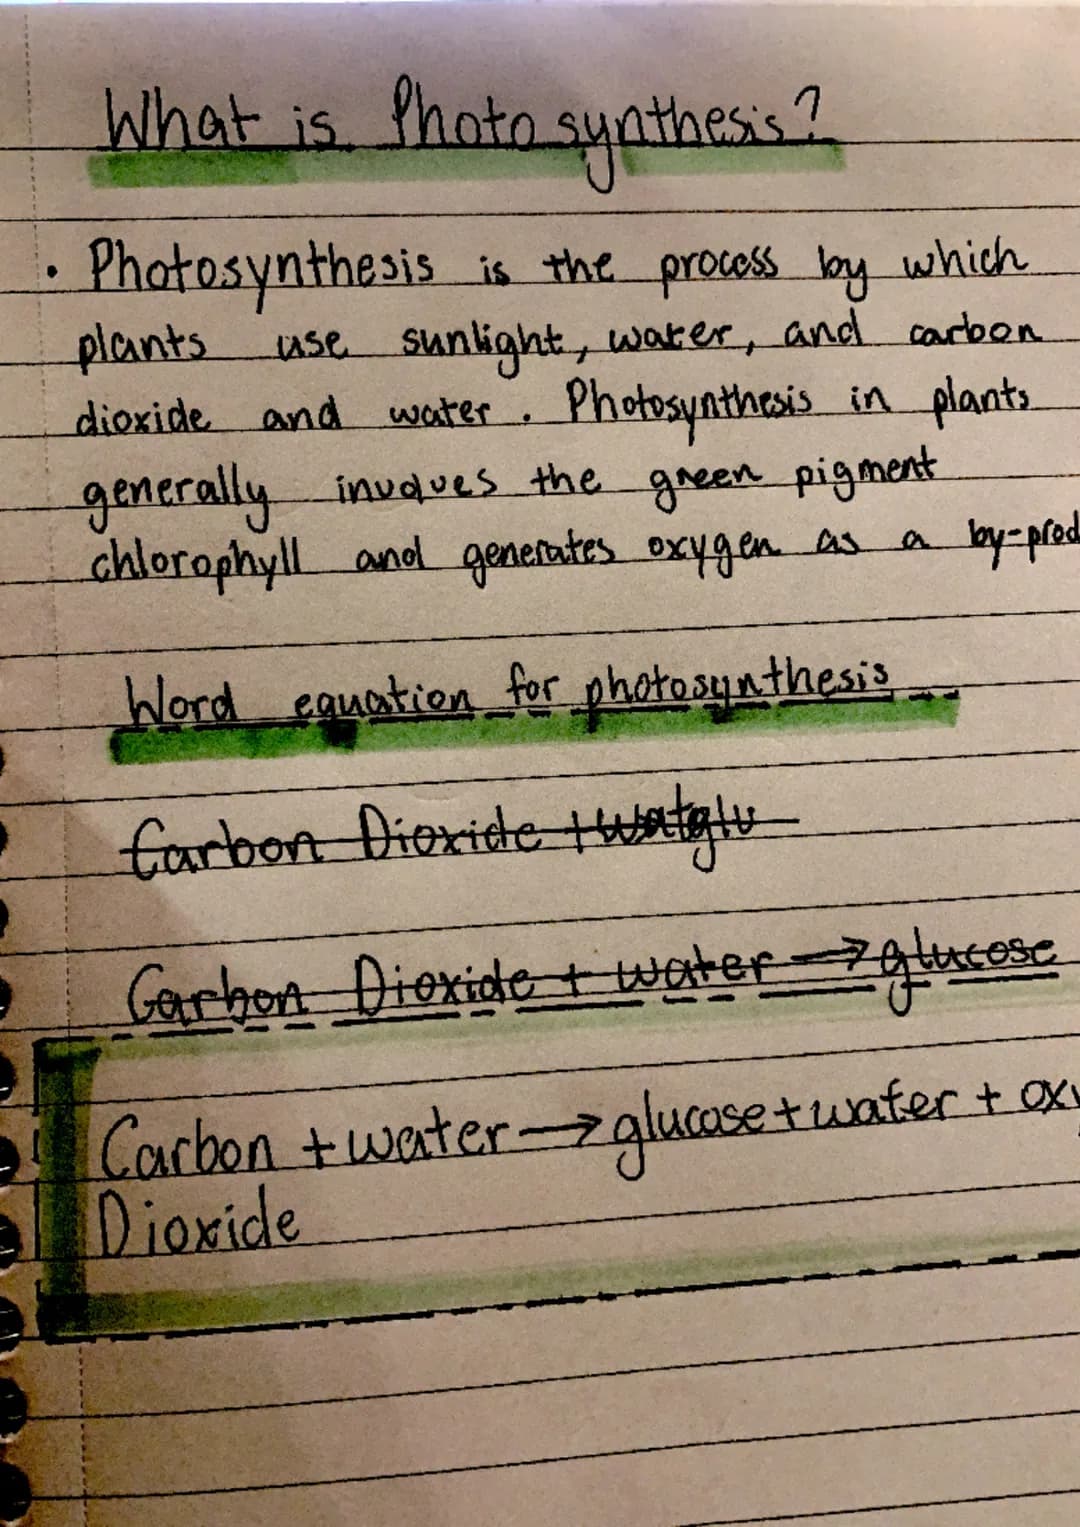 What is Photosynthesis?
• Photosynthesis is the process by which
plants use sunlight, water, and carbon
dioxide and water. Photosynthesis in plants
generally invoques the green pigment
chlorophyll and generates oxygen as a by-prod
Word equation for photosynthesis
Carbon Dioxide + watglu
Carbon Dioxide + water → glucose
Carbon + water → glucose + water + oxy
Dioxide